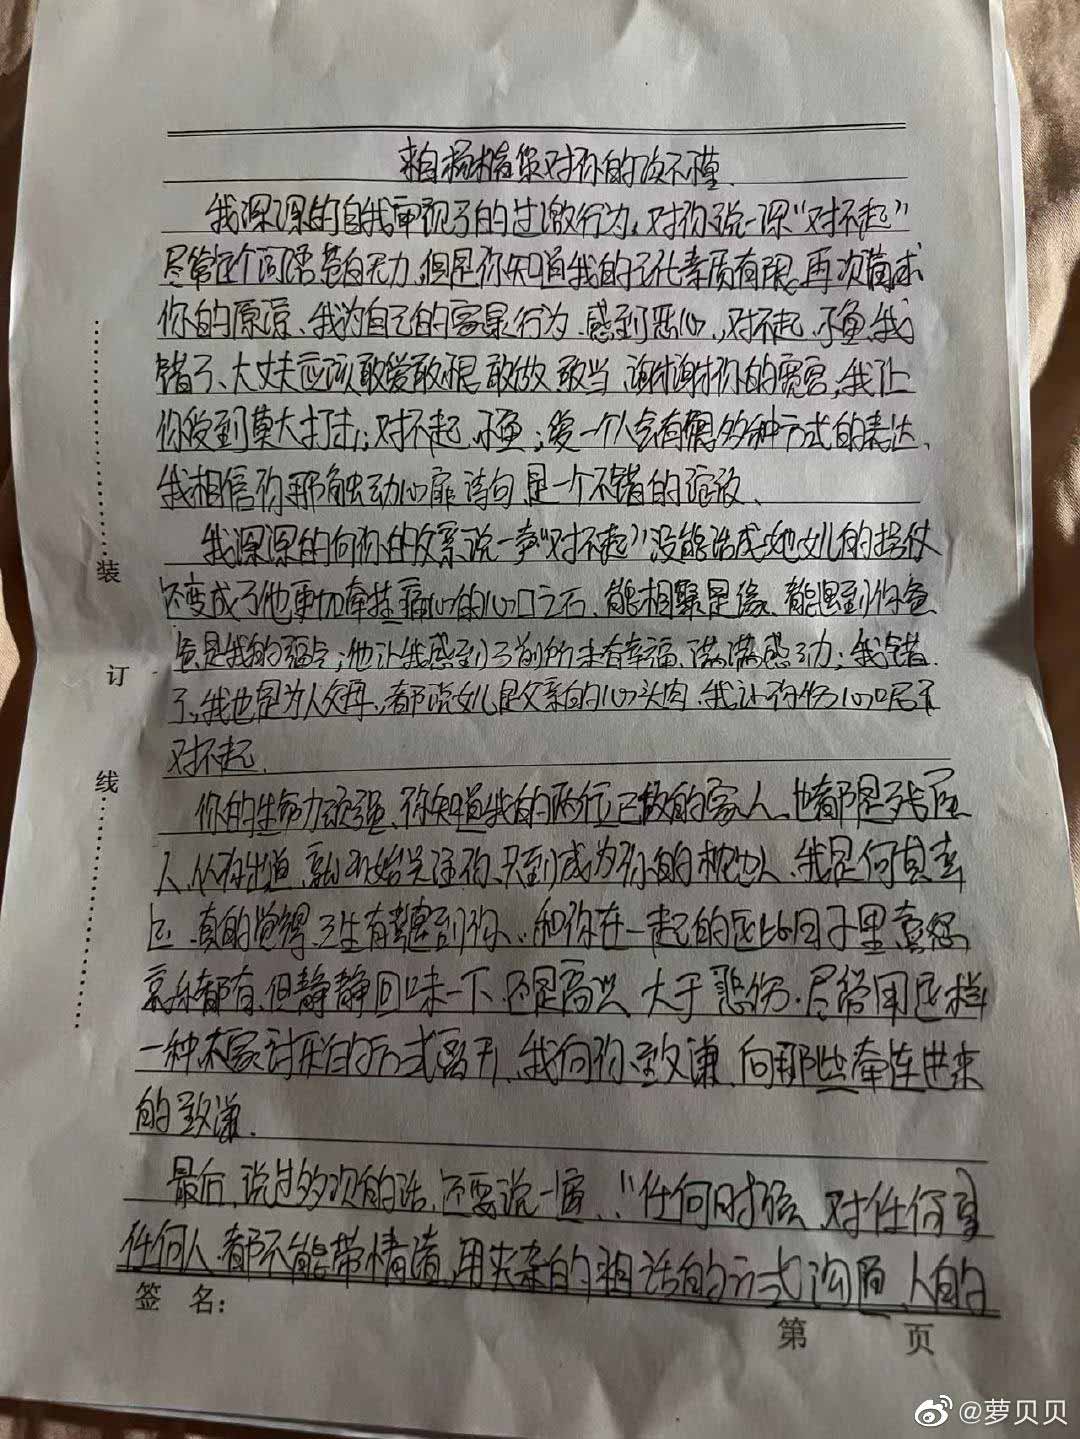 来自杨槠策对你的次不懂.
我深深的自我审视了的过激行为,对你说一深“对不起”
尽管这个词语苍白无力,但是你知道我的文化素质有限,再次请求
你的原谅、我为自己的家暴行为、感到恶心,对不起,小鱼,我
错了、大丈夫应该敢爱敢恨敢做敢当,谢谢你的宽容,我让
你受到莫大打击;对不起,小鱼;爱一个人会有很多种方式的表达、
我相信你那触动心扉诗句,是一个不错的
我深深的向你的父亲说一声“对不起”没能活成她女儿的拐杖
还变成了他更切牵挂痛心的心口之石、能相聚是缘、能遇到你爸
爸是我的福气;他让我感到了前所未有幸福、满满感动;我错
了,我也是为人父母,都说女儿是父亲的心头肉、我让你伤心
对不起.
你的生命力顽强、你知道我的两位已故的家人、也都是残疾
人、从你出道,就开始关注你、只到成为你的枕边人、我是何其幸
运、真的觉得三生有幸遇到你、和你在一起的这些日子里喜怒
哀乐都有、但静静回味一下、还是高兴大于悲伤.尽管用这样
一种不家讨彩的方式离开、我向你致谦、向那些牵连进来
的致谦.
最后、说过多次的话、还要说一遍、“任何时候、对任何事
任何人、都不能带情绪、用夹杂的粗话的方式沟通、人的
装
订
线
签 名:
第 页
@萝贝贝